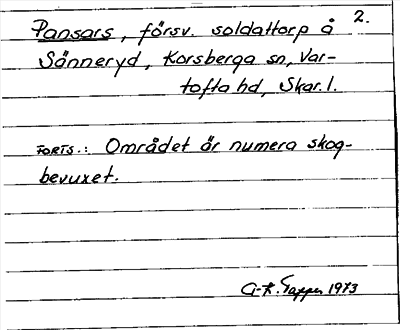 2.
Pansars, försv. soldattorp å
Sänneryd, Korsberga sn, Var-
tofta hd, Skar. l.
FORTS.: Området är numera skog-
bevuxet.
G-R. Tapper 1973